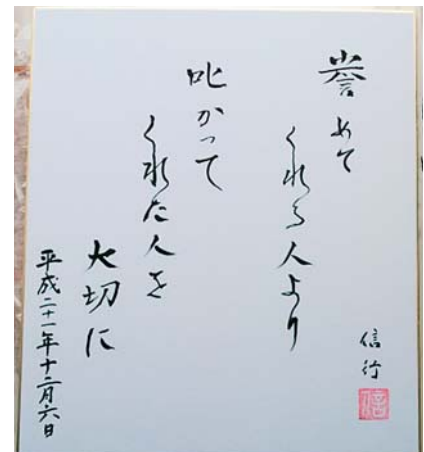 誉めて
くれる人より
叱かって
くれた人を
大切に
平成二十一年十二月六日
信行